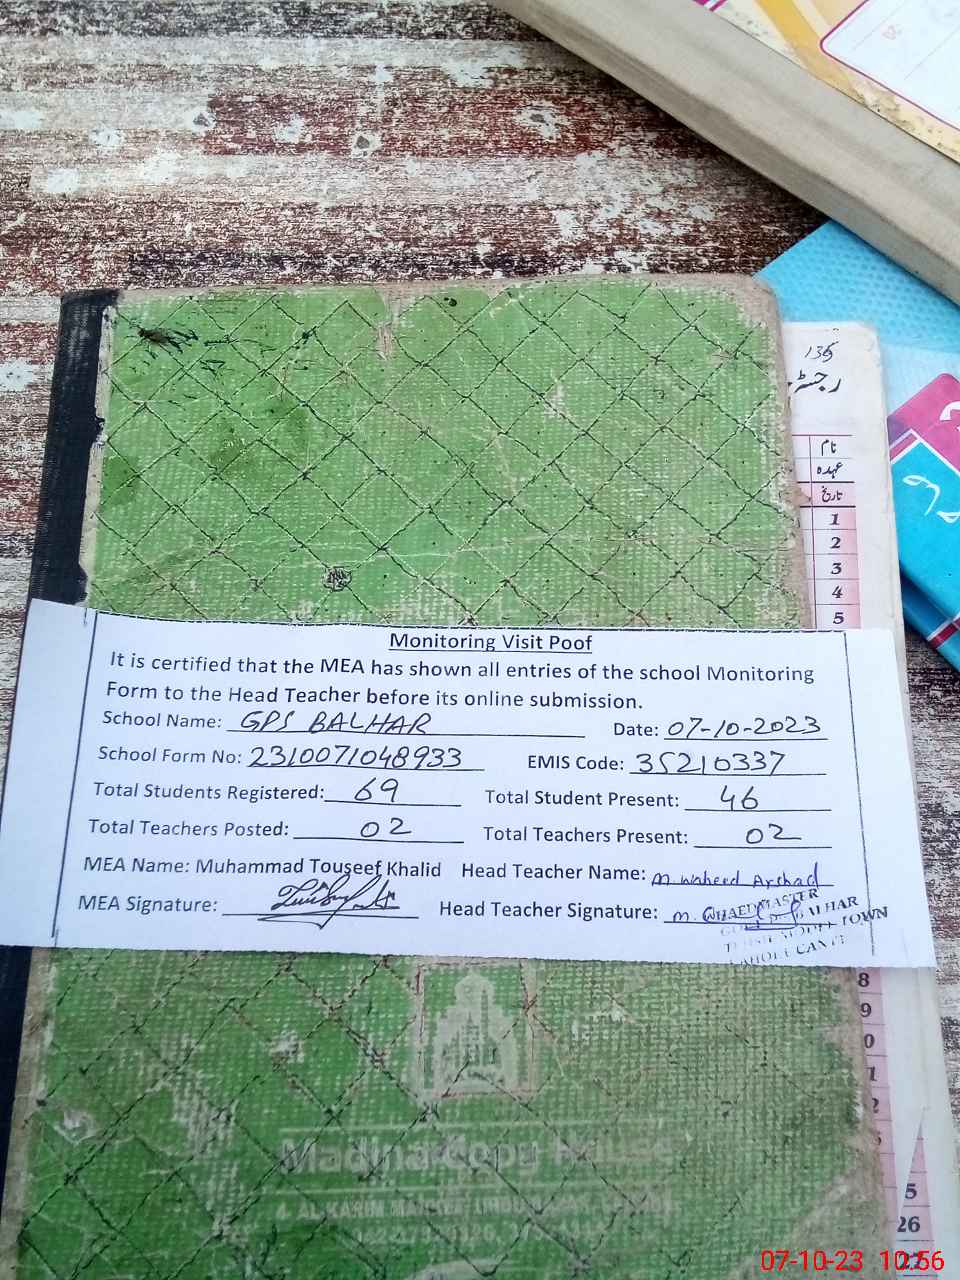 135
رجسٹر
نام
عہدہ
تاریخ
1
2
3
4
5
Monitoring Visit Poof
It is certified that the MEA has shown all entries of the school Monitoring
Form to the Head Teacher before its online submission.
School Name: GPS BALHAR Date: 07-10-2023
School Form No: 2310071048933 EMIS Code: 35210337
Total Students Registered: 69 Total Student Present: 46
Total Teachers Posted: 02 Total Teachers Present: 02
MEA Name: Muhammad Touseef Khalid Head Teacher Name: M. Waheed Arshad
MEA Signature: Head Teacher Signature:
HAEDMASTER
BALHAR
TOWN
LAHORE CANTT
8
9
0
1
2
Madina Copy House
4 AL KARIM MARKET
5
26
27
07-10-23 10:56